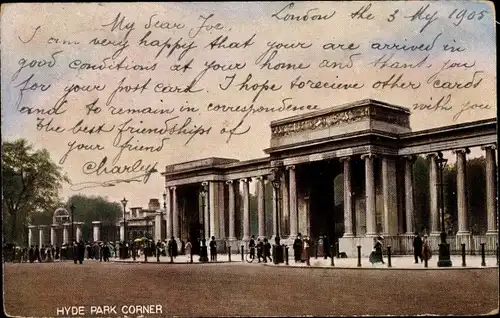 My dear Joe,
London the 3 My 1905
I am very happy that your are arrived in
good conditions at your home and thank you
for your post card. I hope to receive other cards
and to remain in correspondence with you
The best friendships of
your friend
Charley
HYDE PARK CORNER